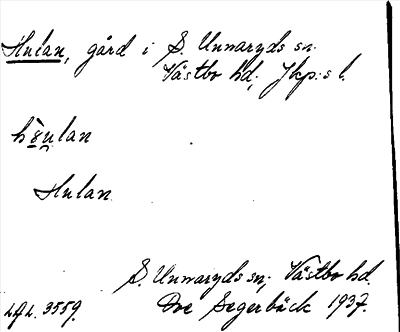 Hulan, gård i S. Unnaryds sn.
Västbo hd, Jkp:s l.
hulan
Hulan.
S. Unnaryds sn, Västbo hd.
Ove Segerbäck 1937.
3559.